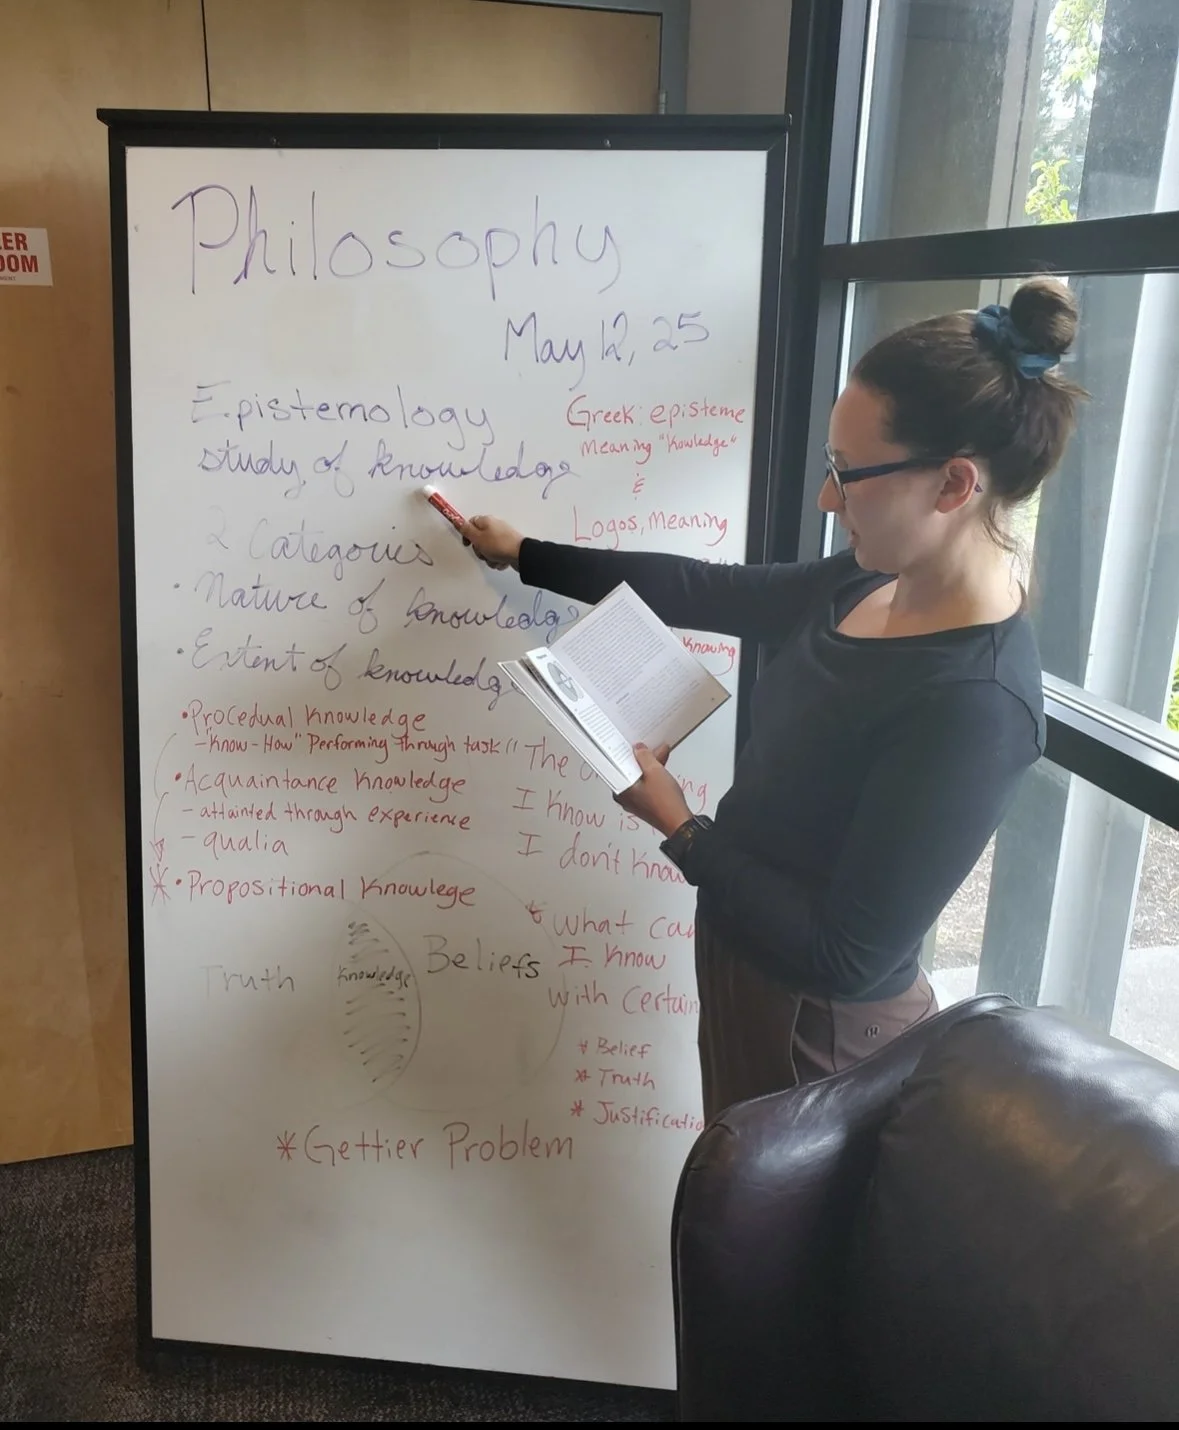 Philosophy
May 12, 25
Epistemology
study of knowledge
Greek: episteme
Meaning "Kowledge"
&
Logos, Meaning
Knowing
2 Categories
• Nature of knowledge
• Extent of knowledge
• Procedual Knowledge
- "Know-How" Performing through task
• Acquaintance Knowledge
- attainted through experience
- qualia
* • Propositional Knowlege
" The
I Know is
I don't Know
* What can
I Know
with Certain
* Belief
* Truth
* Justificatio
Truth
Knowledge
Beliefs
* Gettier Problem
ER
OOM